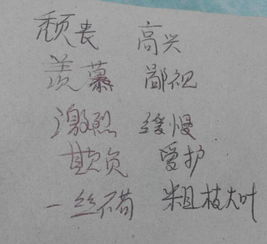 颓丧 高兴
羡慕 鄙视
激烈 缓慢
欺负 爱护
一丝不苟 粗枝大叶